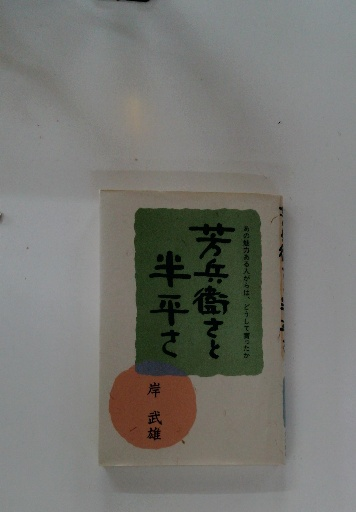 あの魅力ある人がらは、どうして育ったか
芳兵衛さと
半平さ
岸 武雄